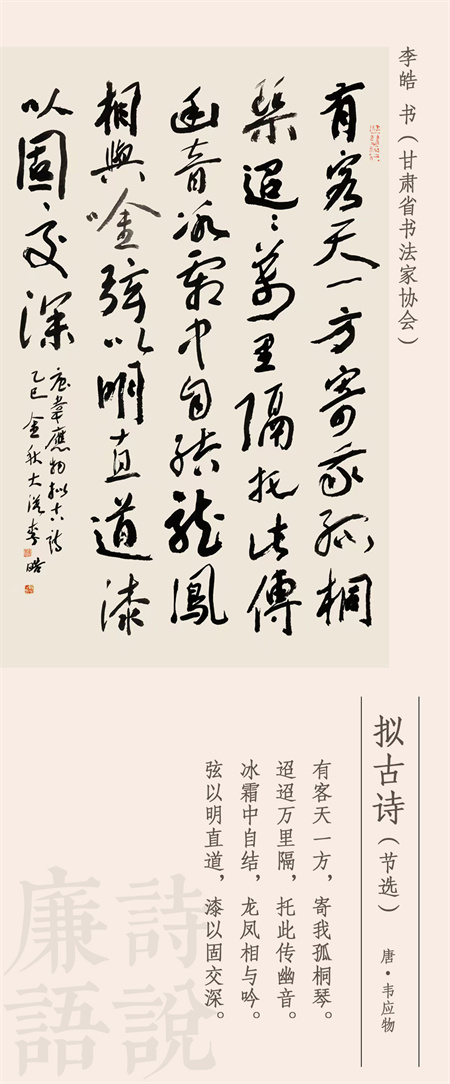 李皓 书（甘肃省书法家协会）
有客天一方寄我孤桐
琴迢迢萬里隔托此傳
幽音冰霜中自結龍鳳
相與唫弦以明直道漆
以固交深
韋應物拟古詩
乙巳金秋大李皓
拟古诗（节选）
唐·韦应物
有客天一方，寄我孤桐琴。
迢迢万里隔，托此传幽音。
冰霜中自结，龙凤相与吟。
弦以明直道，漆以固交深。
詩說
廉語